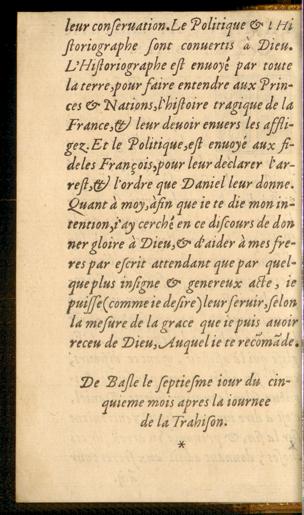 leur conſeruation. Le Politique & l Hi
ſtoriographe ſont conuertis à Dieu.
L'Hiſtoriographe eſt enuoyé par toute
la terre, pour faire entendre aux Prin-
ces & Nations, l'hiſtoire tragique de la
France, & leur deuoir enuers les affli-
gez. Et le Politique, eſt enuoyé aux fi-
deles François, pour leur declarer l'ar-
reſt, & l'ordre que Daniel leur donne.
Quant à moy, afin que ie te die mon in-
tention, i'ay cerché en ce diſcours de don
ner gloire à Dieu, & d'aider à mes fre-
res par eſcrit attendant que par quel-
que plus inſigne & genereux acte, ie
puiſſe (comme ie deſire) leur ſeruir, ſelon
la meſure de la grace que ie puis auoir
receu de Dieu, Auquel ie te recõmãde.
De Baſle le ſeptieſme iour du cin-
quieme mois apres la iournee
de la Trahiſon.
*